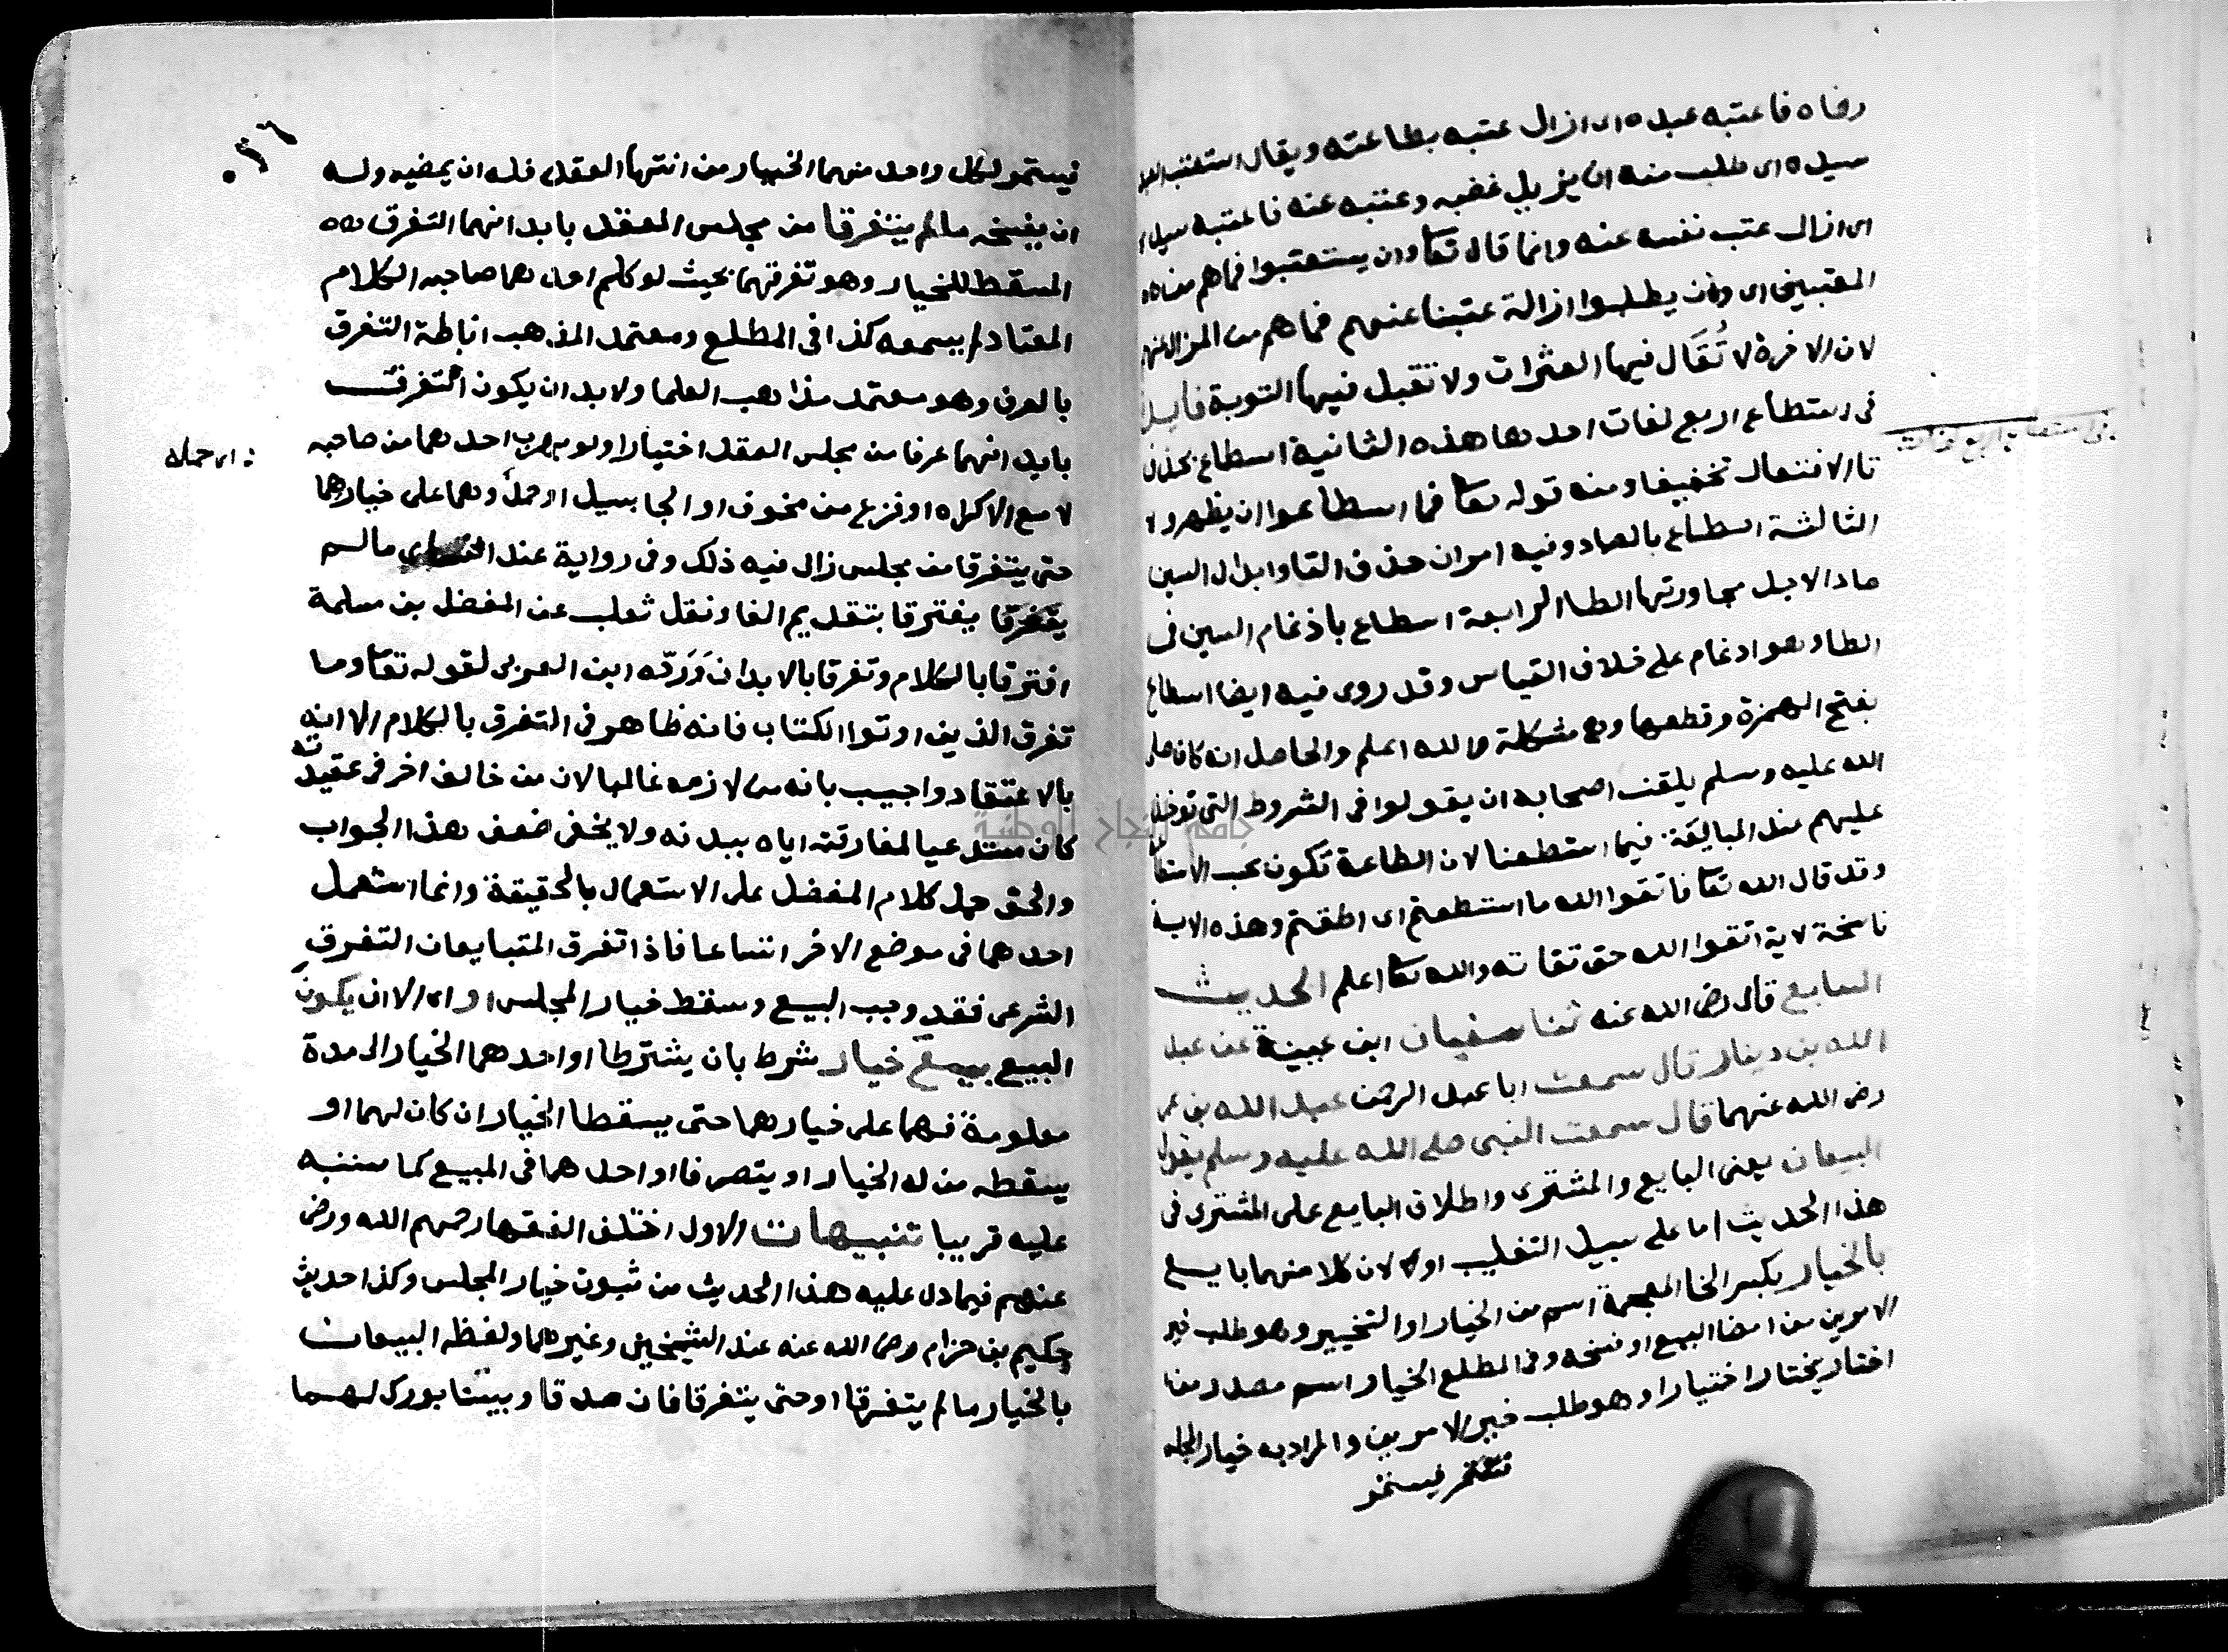 رضاه فاعتبه عبده اى ازال عتبه بطاعته ويقال استعتب العبد
سيده اى طلب منه ان يزيل غضبه وعتبه عنه فاعتبه سيده
اى ازال عتب نفسه عنه وانما قال تعا وان يستعتبوا فماهم من
المعتبين اى وان يطلبوا ازالة عتبنا عنهم فماهم من المزال عنهم
لان الاخرة لا تُقَال فيها العثرات ولا تقبل فيها التوبة فايدة
فى استطاع اربع لغات احدها هذه الثانية اسطاع بحذف
تا الافتعال تخفيفا ومنه قوله تعا فما اسطاعوا ان يظهروه
الثالثة اصطاع بالصاد وفيه امران حذف التا وابدال السين
صادا لاجل مجاورتها الطا الرابعة اسطاع باذغام السين فى
الطا وهو ادغام على خلاف القياس وقد روى فيه ايضا اسطاع
بفتح الهمزة وقطعها وهى مشكلة والله اعلم والحاصل انه كان صلى
الله عليه وسلم يلقن اصحابه ان يقولوا فى الشروط التى توخذ
عليهم عند المبايعة فيما استطعنا لان الطاعة تكون بحسب الاستطا
وقد قال الله تعا فاتقوا الله ما استطعتم اى اطقتم وهذه الاية
ناسخة لاية اتقوا الله حق تقاته والله تعا اعلم الحديث
السابع قال رضى الله عنه ثنا سفيان ابن عيينة عن عبد
الله بن دينار قال سمعت ابا عبد الرحمن عبد الله بن عمر
رضى الله عنهما قال سمعت النبى صلى الله عليه وسلم يقول
البيعان يعنى البايع والمشترى واطلاق البايع على المشترى فى
هذا الحديث اما على سبيل التغليب او لان كلا منهما بايع
بالخيار بكسر الخا المعجمة اسم من الخيار او التخيير وهو طلب خير
الامرين من امضا البيع او فسخه وفى المطلع الخيار اسم مصدر من
اختار يختار اختيارا وهو طلب خير الامرين والمراد به خيار المجلس
فيستمر
فى استطاع اربع لغات
فيستمر لكل واحد منهما الخيار من انتها العقد فله ان يمضيه وله
ان يفسخه ما لم يتفرقا من مجلس العقد بابدانهما التفرق
المسقط للخيار وهو تفرقهما بحيث لو كلم احدهما صاحبه الكلام
المعتاد لم يسمعه كذا فى المطلع ومعتمد المذهب اناطة التفرق
بالعرف وهو معتمد مذاهب العلما ولا بد ان يكون التفرق
بابدانهما عرفا من مجلس العقد اختيارا ولو بهرب احدهما من صاحبه
لا مع الاكراه او فزع من مخوف او الجا بسيل او حمل وهما على خيارهما
حتى يتفرقا من مجلس زال فيه ذلك وفى رواية عند النساى مالم
يتفرقا يفترقا بتقديم الفا ونقل ثعلب عن المفضل بن سلمة
افترقا بالكلام وتفرقا بالابدان وَرَدّه ابن العربى لقوله تعا وما
تفرق الذين اوتوا الكتاب فانه ظاهر فى التفرق بالكلام الا انه
بالاعتقاد واجيب بانه من لازمه غالبا لان من خالف اخر فى عقيدته
كان مستدعيا لمفارقته اياه ببدنه ولا يخفى ضعف هذا الجواب
والحق حمل كلام المفضل على الاستعمال بالحقيقة وانما استعمل
احدهما فى موضع الاخر اتساعا فاذا تفرق المتبايعان التفرق
الشرعى فقد وجب البيع وسقط خيار المجلس او اى الا ان يكون
البيع بيع خيار شرط بان يشترطا او احدهما الخيار الى مدة
معلومة فهما على خيارهما حتى يسقطا الخيار ان كان لهما او
يسقطه من له الخيار او يتصرفا او احدهما فى المبيع كما سننبه
عليه قريبا تنبيهات الاول اختلف الفقها رحمهم الله ورضى
عنهم فيما دل عليه هذا الحديث من ثبوت خيار المجلس وكذا حديث
حكيم بن حزام رضى الله عنه عند الشيخين وغيرهما ولفظه البيعان
بالخيار ما لم يتفرقا او حتى يتفرقا فان صدقا وبينا بورك لهما
جامعة النجاح الوطنية